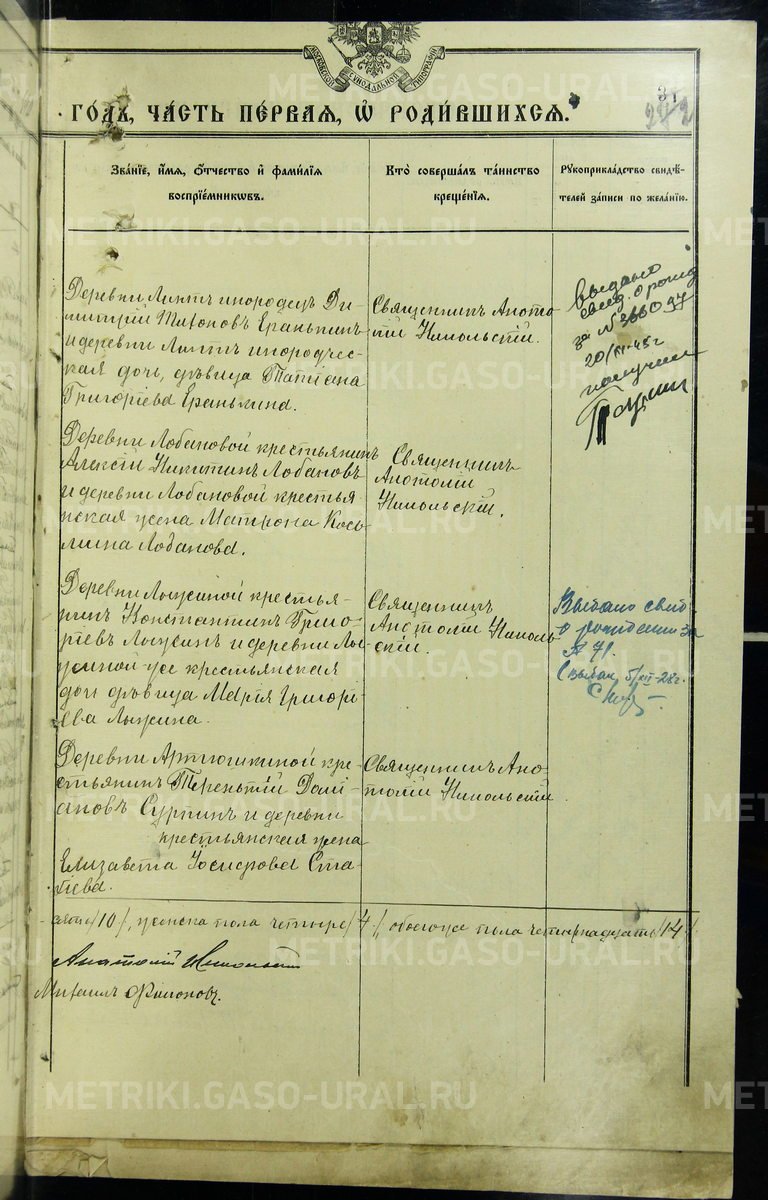 МОСКОВСКОЙ СѴНОДАЛЬНОЙ ТИПОГРАФІИ
31
282
ГО́ДЪ, ЧА́СТЬ ПЕ́РВАЯ, Ѡ҆ РОДИ́ВШИХСЯ.
Зва́нїе, и҆́мя, ѻ҆́тчество и҆ фами́лїя
воспрїе́мниковъ.
Кто̀ соверша́лъ та́инство
креще́нїя.
Рукоприкла́дство свидѣ́-
телей за́писи по жела́нїю.
Деревни Липтъ инородецъ Ди-
митрій
и деревни инородчес-
кая дочь, дѣвица Татіана
Григоріева Еранькина.
Священникъ Анато-
лій Никольскій.
Выдано
свид. о рожд
за № 366097
20/III-48 г
получил
Деревни Лобановой крестьянинъ
Алексій Никитинъ Лобановъ
и деревни Лобановой крестья
нская жена Матрона Кось-
мина Лобанова.
Священникъ
Анатолій
Никольскій.
Деревни крестья-
нинъ Константинъ Григо-
ріевъ и деревни
же крестьянская
дочь дѣвица Марія Григорі-
ева
Священникъ
Анатолій Николь-
скій.
Выдано свид
о рождении за
№ 71.
5/XII-28 г.
Деревни Артюшкиной кре-
стьянинъ Терентій Домі-
ановъ и деревни
крестьянская жена
Елизавета Іосифова Ста-
Священникъ Ана-
толій Никольскій.
/10/, женска пола четыре /4/, обоего пола четырнадцать /14/.
Анатолій Никольскій
Михаилъ Филоновъ.
METRIKI.GASO-URAL.RU